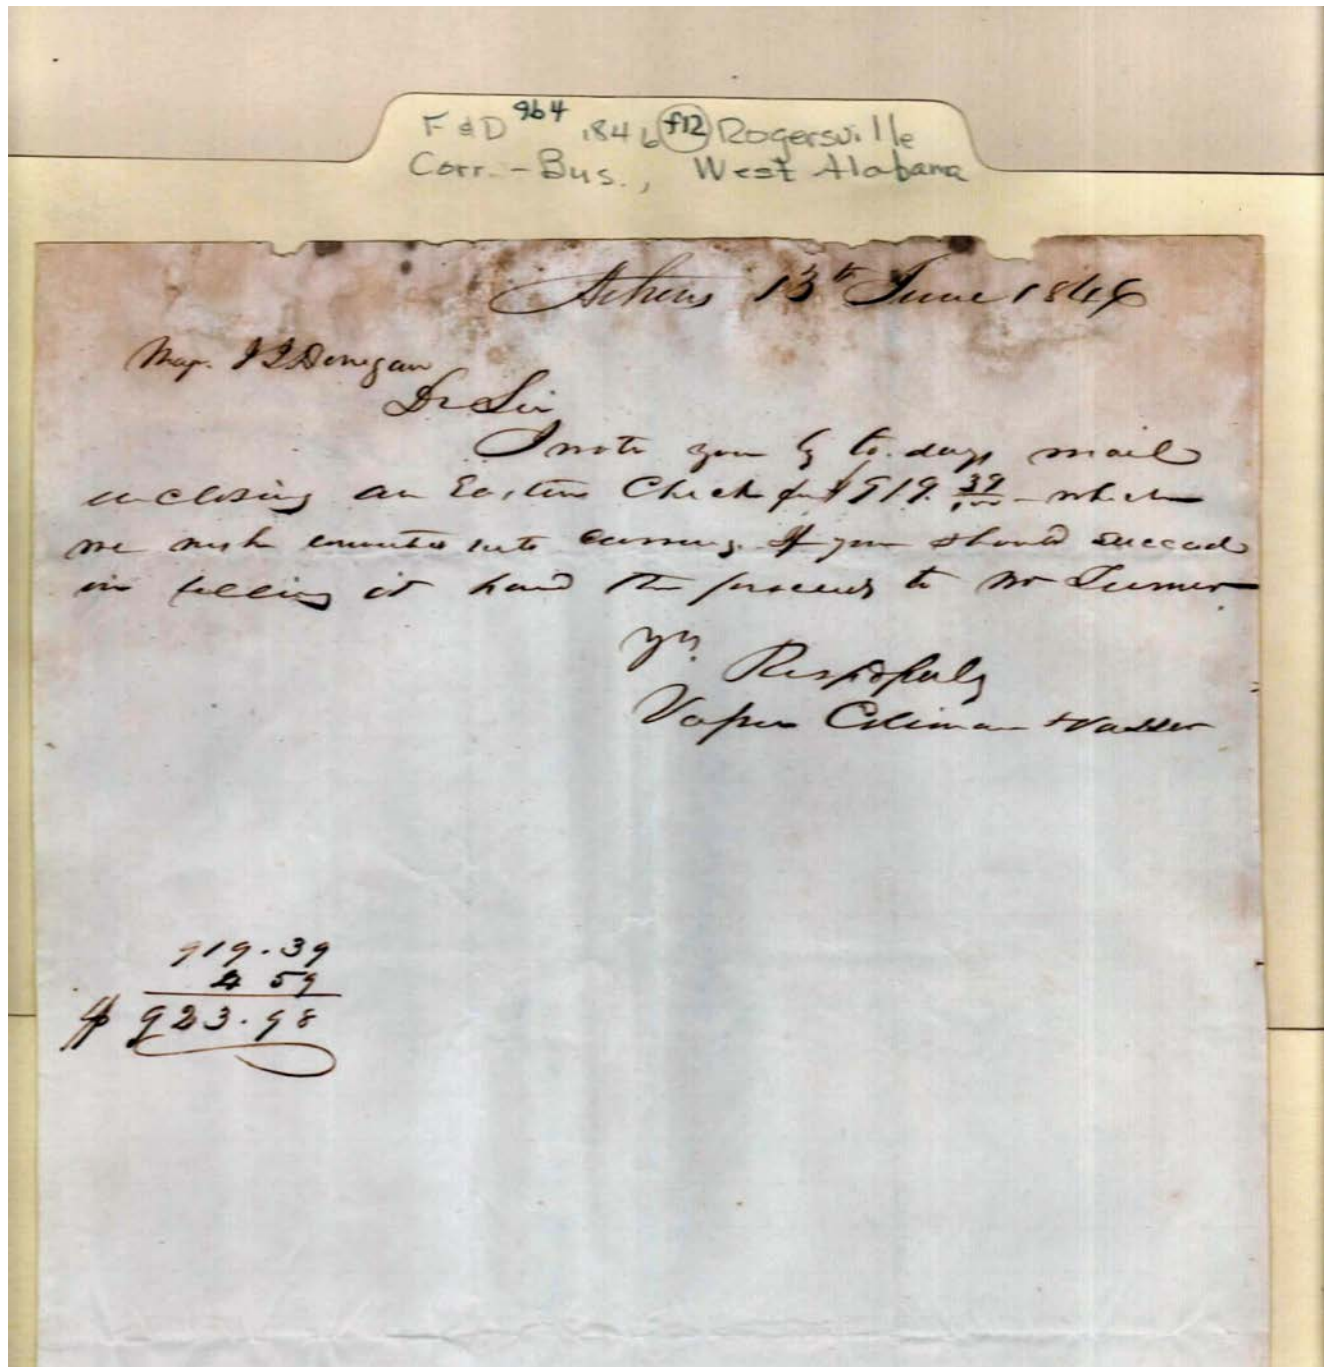 F & D 9b4 1846 f12 Rogersville
Corr. - Bus., West Alabama
Athens 13th June 1846
J J Donegan
Dr Sir
I wrote you by to-days mail
enclosing an Eastern Check for $919. 39/100 which
we wish converted into currency. If you should succeed
in selling it hand the proceeds to Mr Turner
Yrs.
Respectfully
Vasser Coleman & Vasser
919.39
4 59
$ 923.98